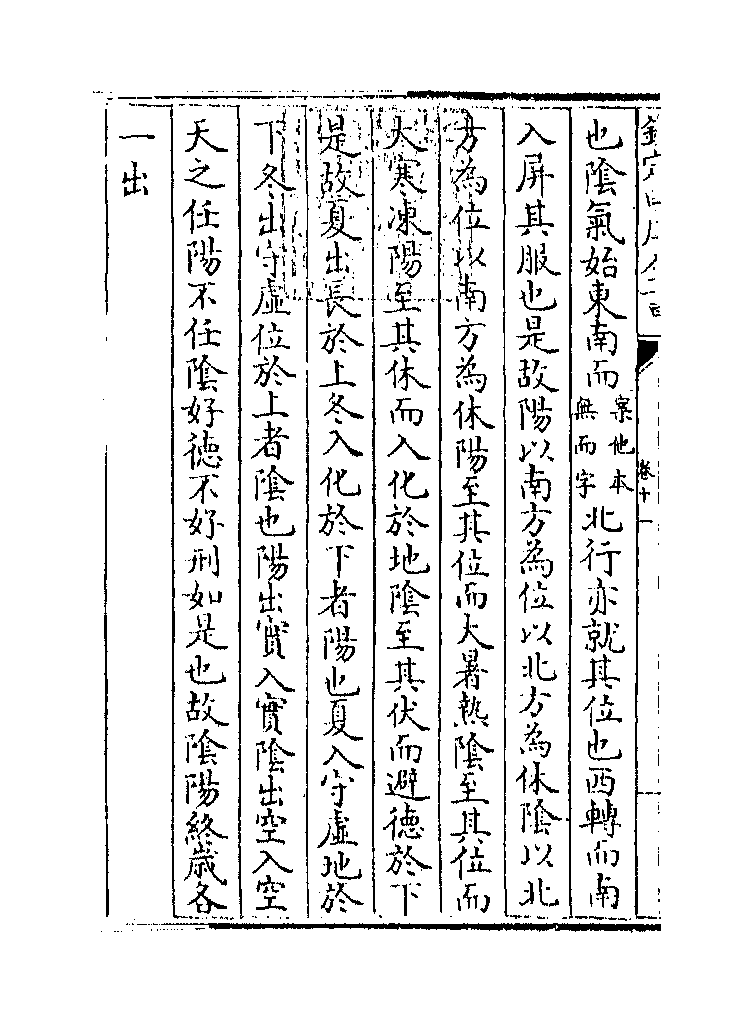 卷十一
也陰氣始東南而案他本無而字北行亦就其位也西轉而南
入屏其服也是故陽以南方為位以北方為休陰以北
方為位以南方為休陽至其位而大暑熱陰至其位而
大寒凍陽至其休而入化於地陰至其伏而避德於下
是故夏出長於上冬入化於下者陽也夏入守虛地於
下冬出守虛位於上者陰也陽出實入實陰出空入空
天之任陽不任陰好德不好刑如是也故陰陽終歲各
一出